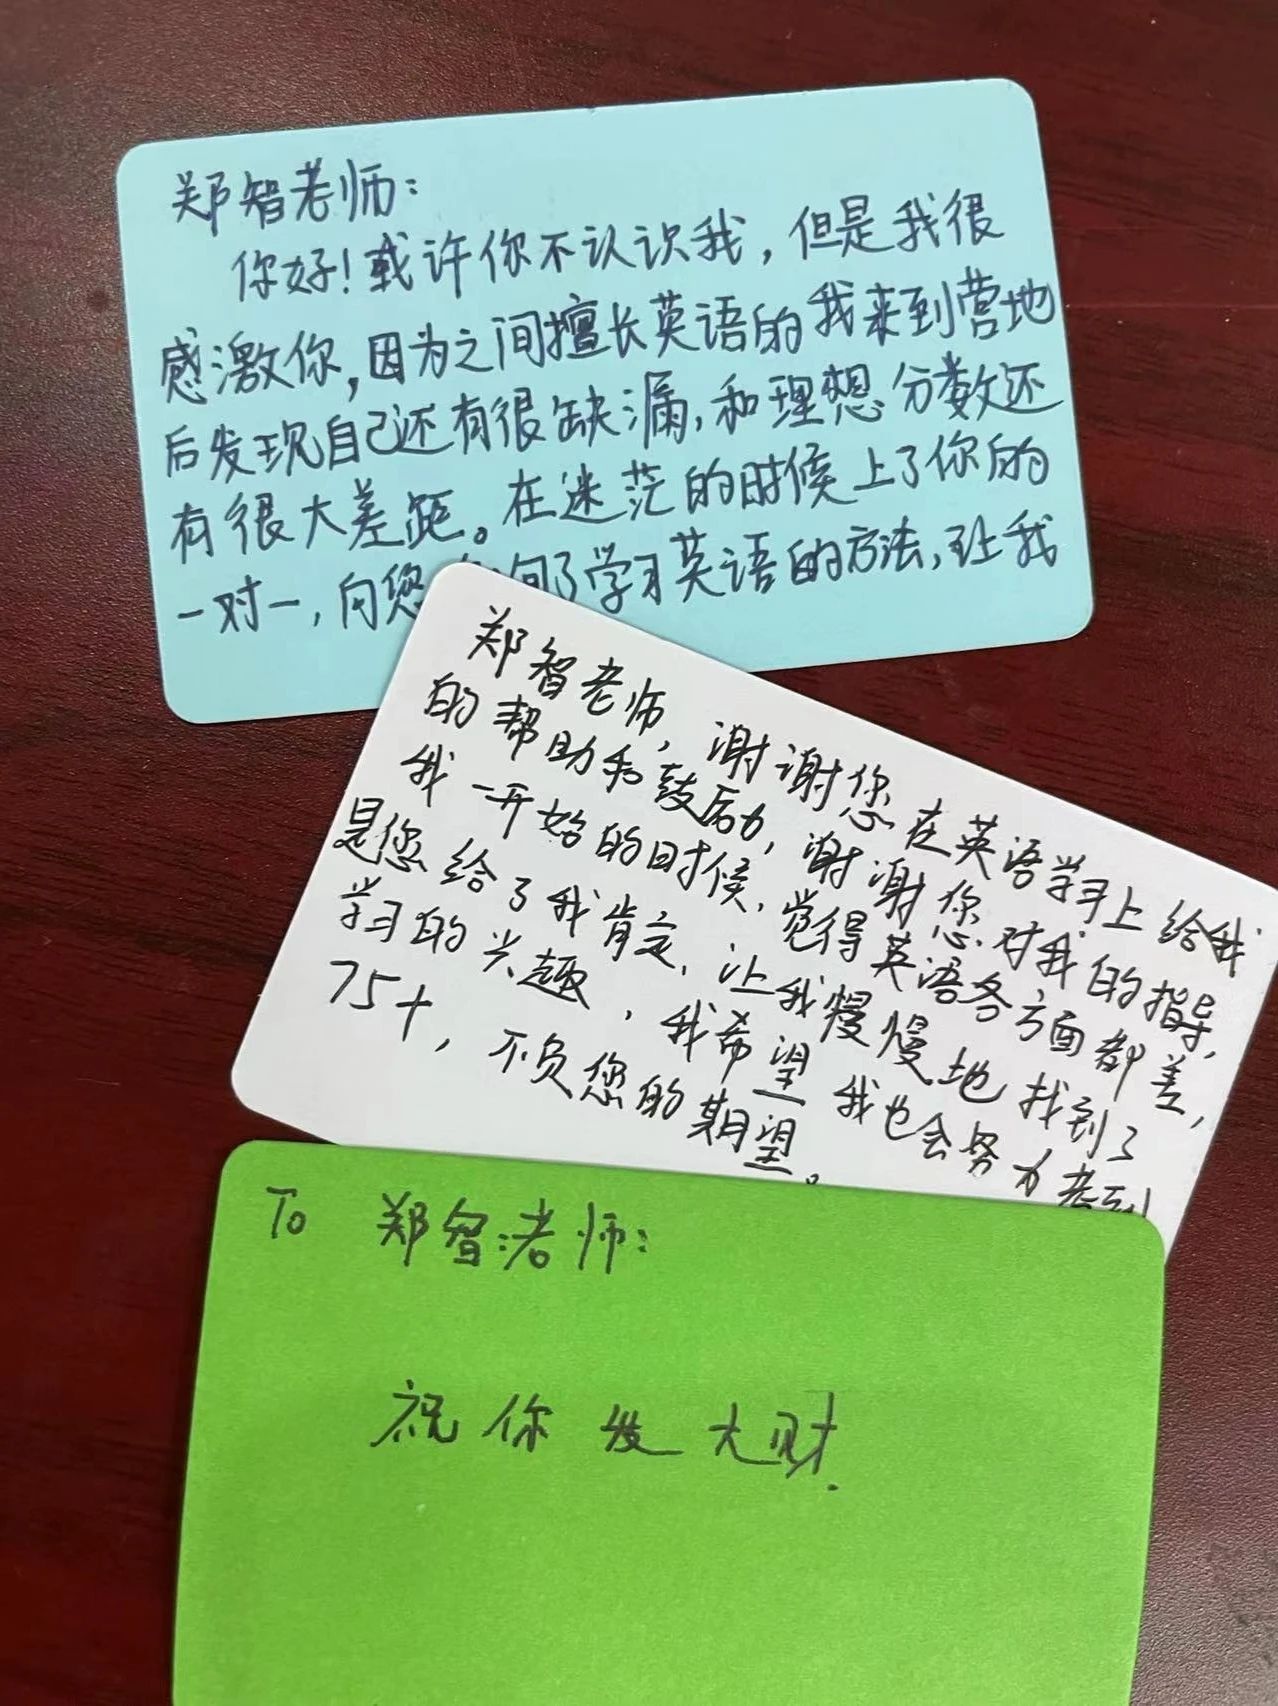 郑智老师：
你好！或许你不认识我，但是我很
感激你，因为之间擅长英语的我来到营地
后发现自己还有很缺漏，和理想分数还
有很大差距。在迷茫的时候上了你的
一对一，向您 问了学习英语的方法，让我
郑智老师，谢谢您在英语学习上给我
的帮助和鼓励，谢谢您对我的指导，
我一开始的时候，觉得英语各方面都差，
是您给了我肯定，让我慢慢地找到了
学习的兴趣，我希望我也会努力考到
75+，不负您的期望。
To 郑智老师：
祝你发大财.